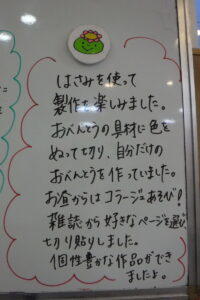 はさみを使って
製作を楽しみました。
おべんとうの具材に色を
ぬって切り、自分だけの
おべんとうを作っていました。
お昼からはコラージュあそび!
雑誌から好きなページを選び、
切り貼りしました。
個性豊かな作品ができ
ましたよ。